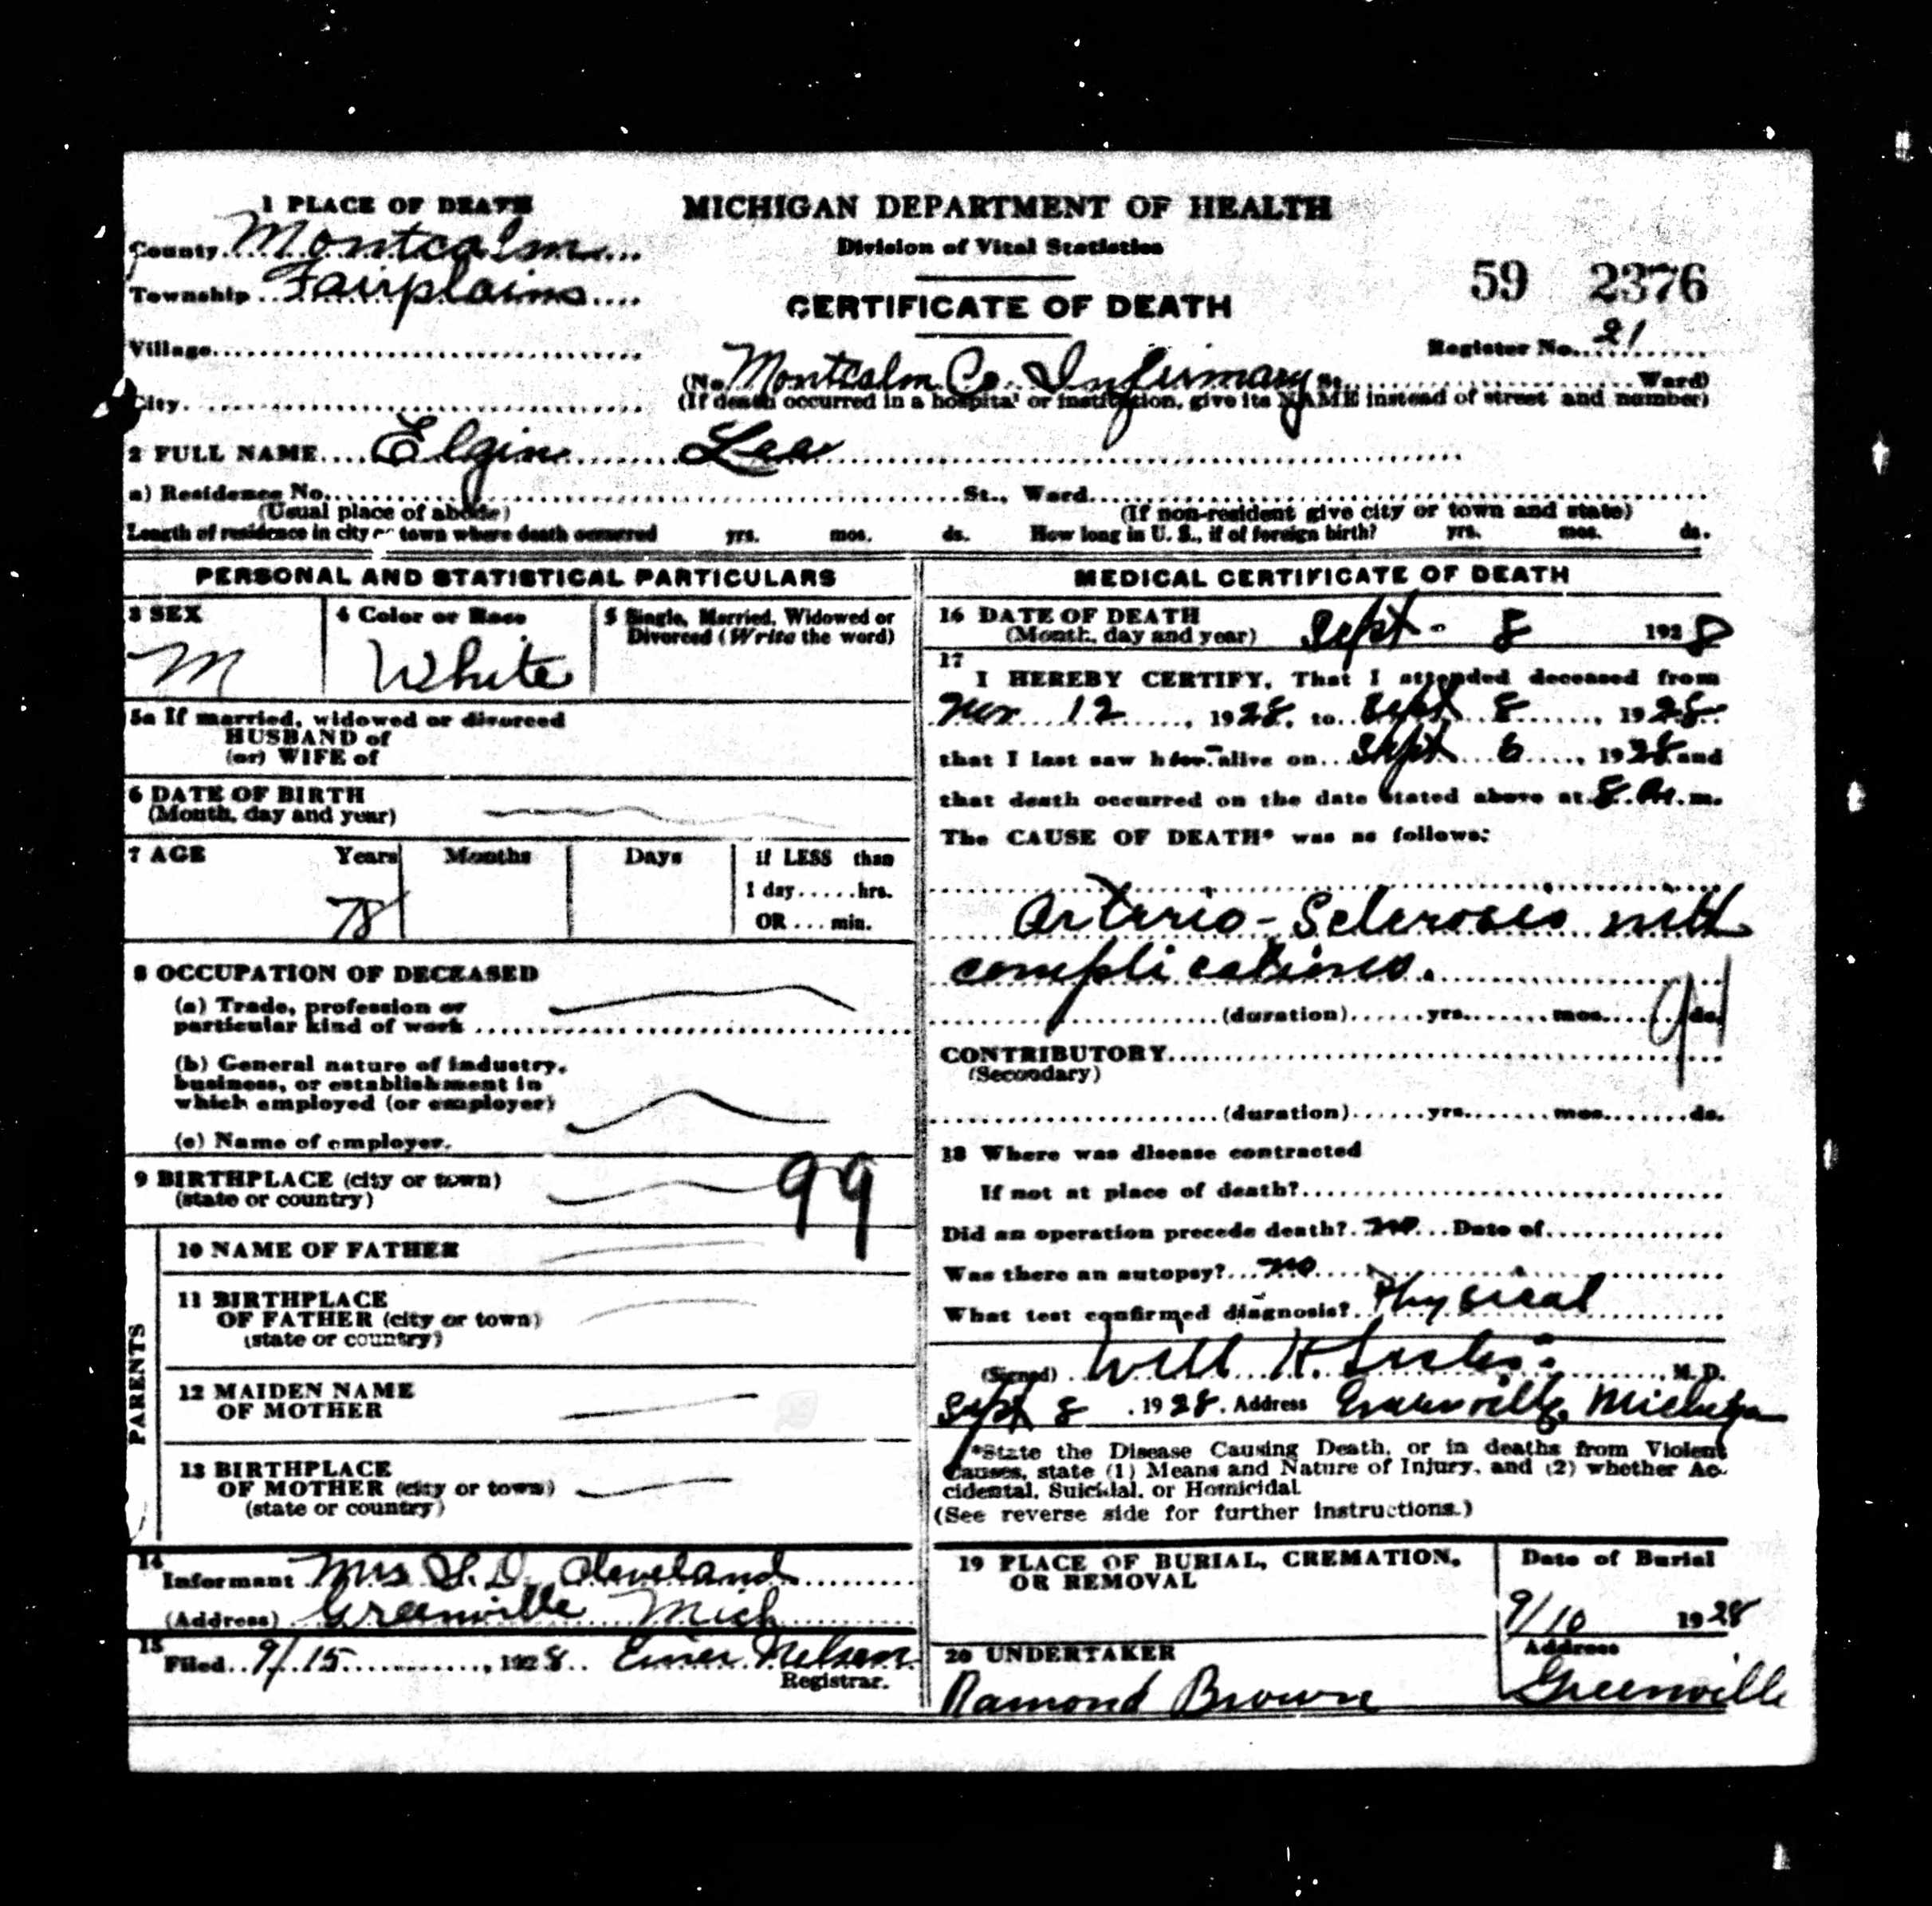 1 PLACE OF DEATH
County Montcalm
Township Fairplains
Village
City
MICHIGAN DEPARTMENT OF HEALTH
Division of Vital Statistics
CERTIFICATE OF DEATH
59 2376
Register No. 21
(No. Montcalm Co. Infirmary St. Ward)
(If death occurred in a hospital or institution, give its NAME instead of street and number)
2 FULL NAME Elgin Lee
a) Residence No. St., Ward
(Usual place of abode) (If non-resident give city or town and state)
Length of residence in city or town where death occurred yrs. mos. ds. How long in U. S., if of foreign birth? yrs. mos. ds.
PERSONAL AND STATISTICAL PARTICULARS
3 SEX
M
4 Color or Race
White
5 Single, Married, Widowed or
Divorced (Write the word)
5a If married, widowed or divorced
HUSBAND of
(or) WIFE of
6 DATE OF BIRTH
(Month, day and year)
7 AGE Years Months Days
78
if LESS than
1 day......hrs.
OR ... min.
8 OCCUPATION OF DECEASED
(a) Trade, profession or
particular kind of work
(b) General nature of industry,
business, or establishment in
which employed (or employer)
(c) Name of employer.
9 BIRTHPLACE (city or town) 99
(state or country)
PARENTS
10 NAME OF FATHER
11 BIRTHPLACE
OF FATHER (city or town)
(state or country)
12 MAIDEN NAME
OF MOTHER
13 BIRTHPLACE
OF MOTHER (city or town)
(state or country)
14
Informant Mrs S. D. Cleveland
(Address) Greenville Mich
15
Filed 9/15, 1928 Einer Nelsen
Registrar.
MEDICAL CERTIFICATE OF DEATH
16 DATE OF DEATH
(Month, day and year) Sept - 8 1928
17
I HEREBY CERTIFY, That I attended deceased from
12, 1928, to Sept 8, 1928
that I last saw him alive on Sept 6, 1928 and
that death occurred on the date stated above at 8 A. m.
The CAUSE OF DEATH* was as follows:
Arterio-Sclerosis with
complications.
(duration) yrs. mos. ds.
91
CONTRIBUTORY
(Secondary)
(duration) yrs. mos. ds.
18 Where was disease contracted
If not at place of death?
Did an operation precede death? no Date of
Was there an autopsy? no
What test confirmed diagnosis? Physical
(Signed) Will H. , M. D.
Sept 8, 1928. Address Greenville, Michigan
*State the Disease Causing Death, or in deaths from Violent
Causes, state (1) Means and Nature of Injury, and (2) whether Ac-
cidental, Suicidal, or Homicidal
(See reverse side for further instructions.)
19 PLACE OF BURIAL, CREMATION,
OR REMOVAL
Date of Burial
9/10 1928
20 UNDERTAKER
Ramond Brown
Address
Greenville